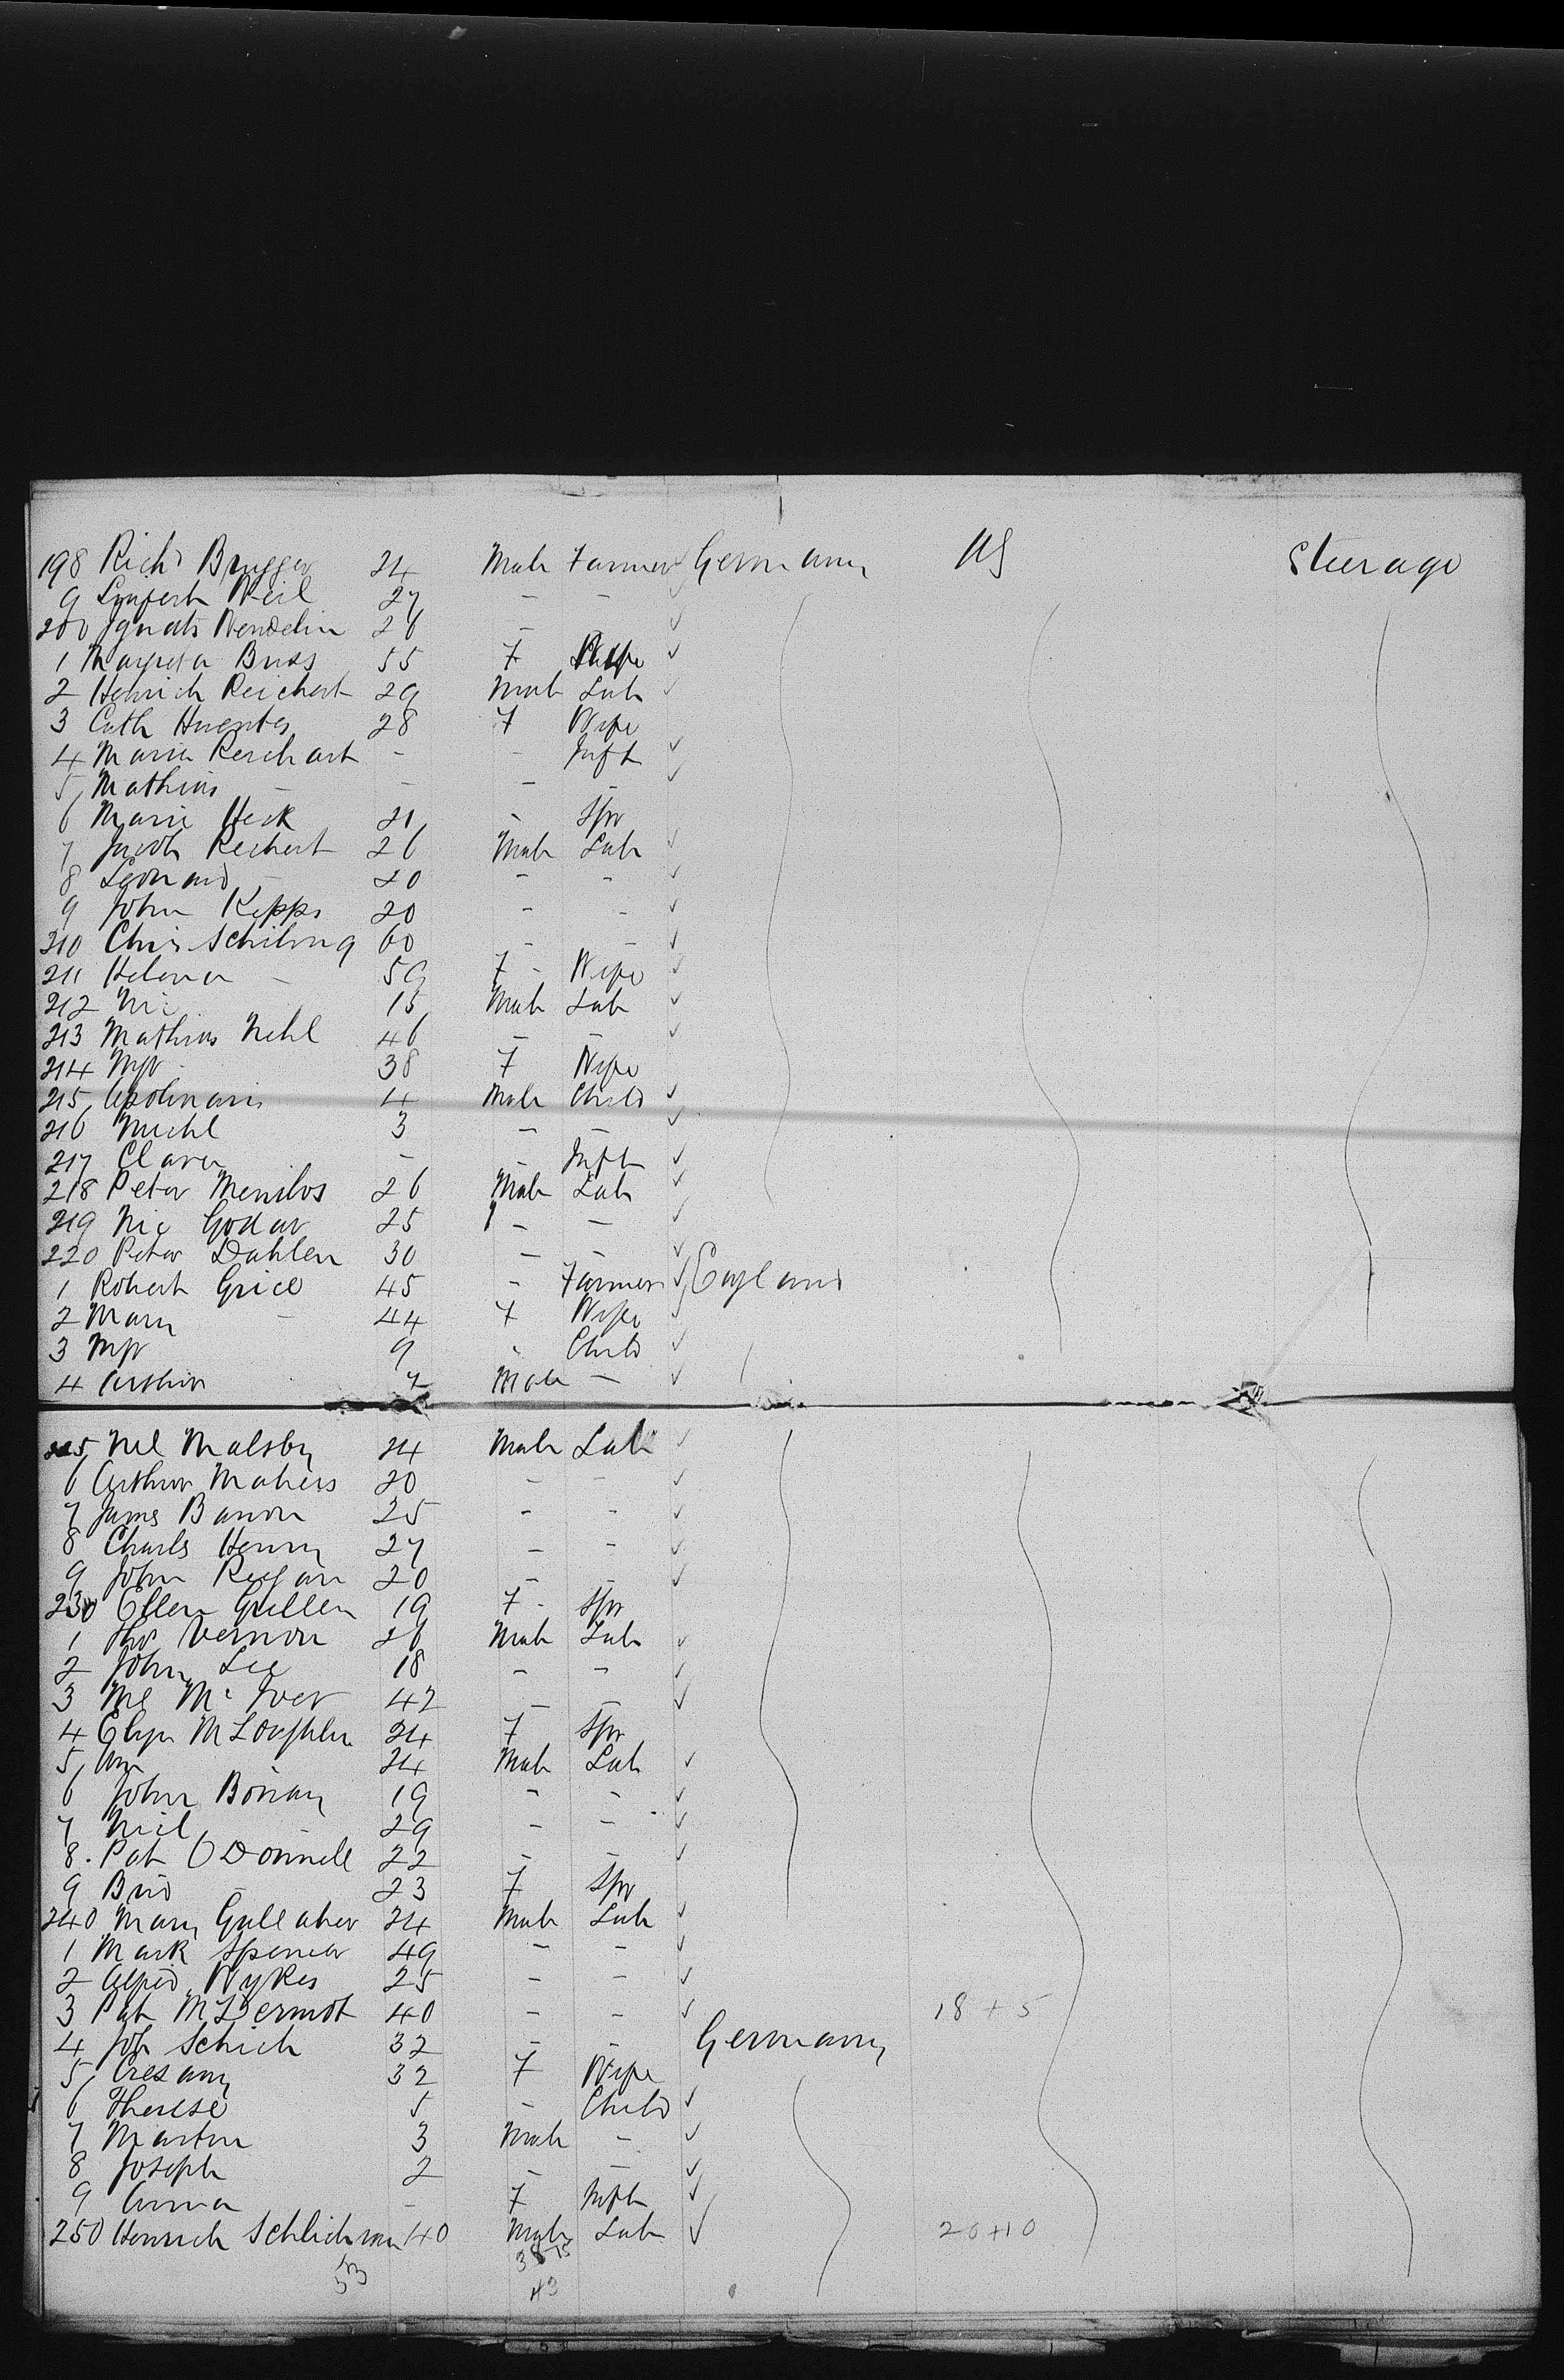 198 Richd Brugger 24 Male Farmer Germany US Steerage
9 Neil 27 - -
200 Ignats Wendelin 26 - -
1 Margreta Buss 55 F Wife
2 Heinrich Reichert 29 Male Lab
3 Cath 28 F Wife
4 Maria Reichart - - Inft
5 Mathias - - - -
6 Marie Heck 21 - Spr
7 Jacob Reichert 26 Male Lab
8 Leonard - 20 - -
9 John Kepps 20 - -
210 Chris Schiling 60 - -
211 Helena - 59 F - Wife
212 Nic 15 Male Lab
213 Mathias Nehl 46 - -
214 38 F Wife
215 Apolinaris 4 Male Child
216 Michl 3 - -
217 Clara - - Inft
218 Peter 26 Male Lab
219 Nic Godar 25 - -
220 Peter Dahlen 30 - -
1 Robert Grice 45 - Farmer England
2 Mary - 44 F Wife
3 9 - Child
4 Arthur 7 Male -
225 Malsby 24 Male Lab
6 Arthur Mahers 20 - -
7 James Baron 25 - -
8 Charles Henry 27 - -
9 John Regan 20 - -
230 Ellen Gullen 19 F - Spr
1 Thos Vernon 26 Male Lab
2 John Lee 18 - -
3 Ml McIver 42 - -
4 Eliza McLoughlin 24 F Spr
5 24 Male Lab
6 John 19 - -
7 Neil 29 - -
8 Pat O Donnell 22 - -
9 Brid - 23 F Spr
240 Mary Gallaher 24 Male Lab
1 Mark Spencer 49 - -
2 Alfred Wykes 25 - -
3 Pat McDermot 40 - - 18 + 5
4 Jos Schich 32 - - Germany
5 Cresany 32 F Wife
6 Therese 5 - Child
7 Martin 3 Male -
8 Joseph 2 - -
9 Anna - F Inft
250 Henrich Schlichman 40 Male Lab 20 + 10
53 38 15
43